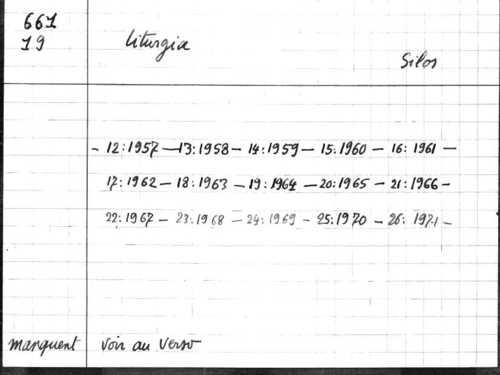 661
19
Liturgia
Silos
- 12:1957 - 13:1958 - 14:1959 - 15:1960 - 16:1961 -
17:1962 - 18:1963 - 19:1964 - 20:1965 - 21:1966 -
22:1967 - 23:1968 - 24:1969 - 25:1970 - 26:1971 -
manquent voir au verso